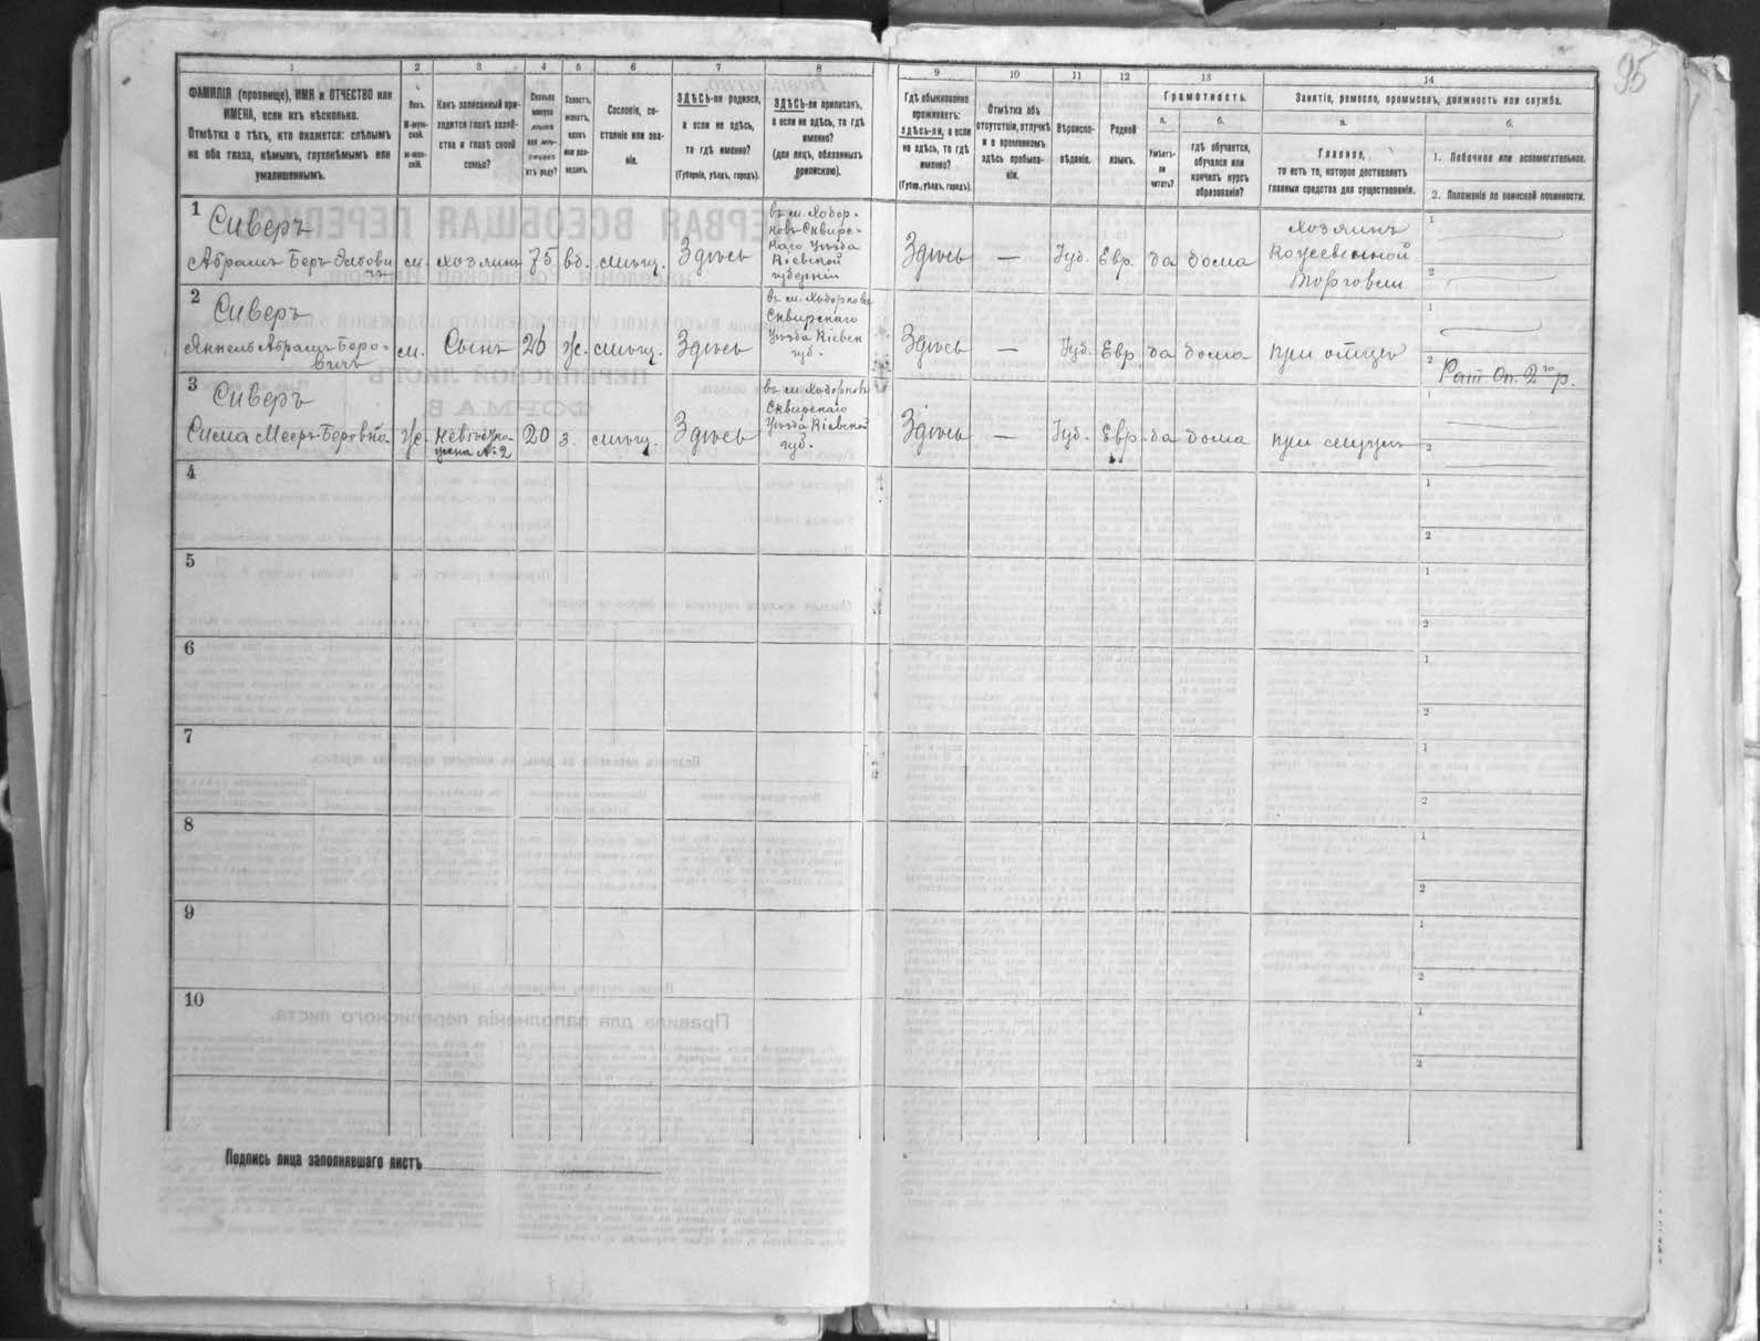 95
1
2
3
4
5
6
7
8
9
10
11
12
13
14
ФАМИЛІЯ (прозвище), ИМЯ и ОТЧЕСТВО или
ИМЕНА, если ихъ нѣсколько.
Отмѣтка о тѣхъ, кто окажется: слѣпымъ
на оба глаза, нѣмымъ, глухонѣмымъ или
умалишеннымъ.
Какъ записанный при-
ходится главѣ хозяй-
ства и главѣ своей
семьи?
Сословіе, со-
стояніе или зва-
ніе.
ЗДѢСЬ-ли родился,
а если не здѣсь,
то гдѣ именно?
(Губернія, уѣздъ, городъ).
ЗДѢСЬ-ли приписанъ,
а если не здѣсь, то гдѣ
именно?
(для лицъ, обязанныхъ
припискою).
Гдѣ обыкновенно
проживаетъ:
здѣсь-ли, а если
не здѣсь, то гдѣ
именно?
(Губер., уѣздъ, городъ).
Отмѣтка объ
отсутствіи, отлучкѣ
и о временномъ
здѣсь пребыва-
ніи.
Вѣроиспо-
вѣданіе.
Родной
языкъ.
Грамотность.
а.
Умѣетъ-
ли
читать?
б.
гдѣ обучается,
обучался или
кончилъ курсъ
образованія?
Занятіе, ремесло, промыселъ, должность или служба.
а.
Главное,
то есть то, которое доставляетъ
главныя средства для существованія.
б.
1. Побочное или вспомогательное.
2. Положеніе по воинской повинности.
1
Сиверъ
Абрамъ Беръ
м.
хозяинъ
75
вд.
мѣщ.
Здѣсь
въ м. Ходор-
ковъ Сквирс-
каго Уѣзда
Кіевской
губерніи
Здѣсь
—
Іуд.
Евр.
да
дома
Хозяинъ
Кожевенной
торговли
1
2
2
Сиверъ
Янкель Абрамъ-Беро-
вичъ
м.
Сынъ
26
ж.
мѣщ.
Здѣсь
въ м. Ходорковъ
Сквирскаго
Уѣзда Кіевск
губ.
Здѣсь
—
Іуд.
Евр
да
дома
при отцѣ
1
2
Рат. Оп. 2го р.
3
Сиверъ
ж.
Невѣстка
жена № 2
20
з.
мѣщ.
Здѣсь
въ м. Ходорковъ
Сквирскаго
Уѣзда Кіевской
губ.
Здѣсь
—
Іуд.
Евр.
да
дома
при мужѣ
1
2
4
1
2
5
1
2
6
1
2
7
1
2
8
1
2
9
1
2
10
1
2
Подпись лица заполнявшаго листъ